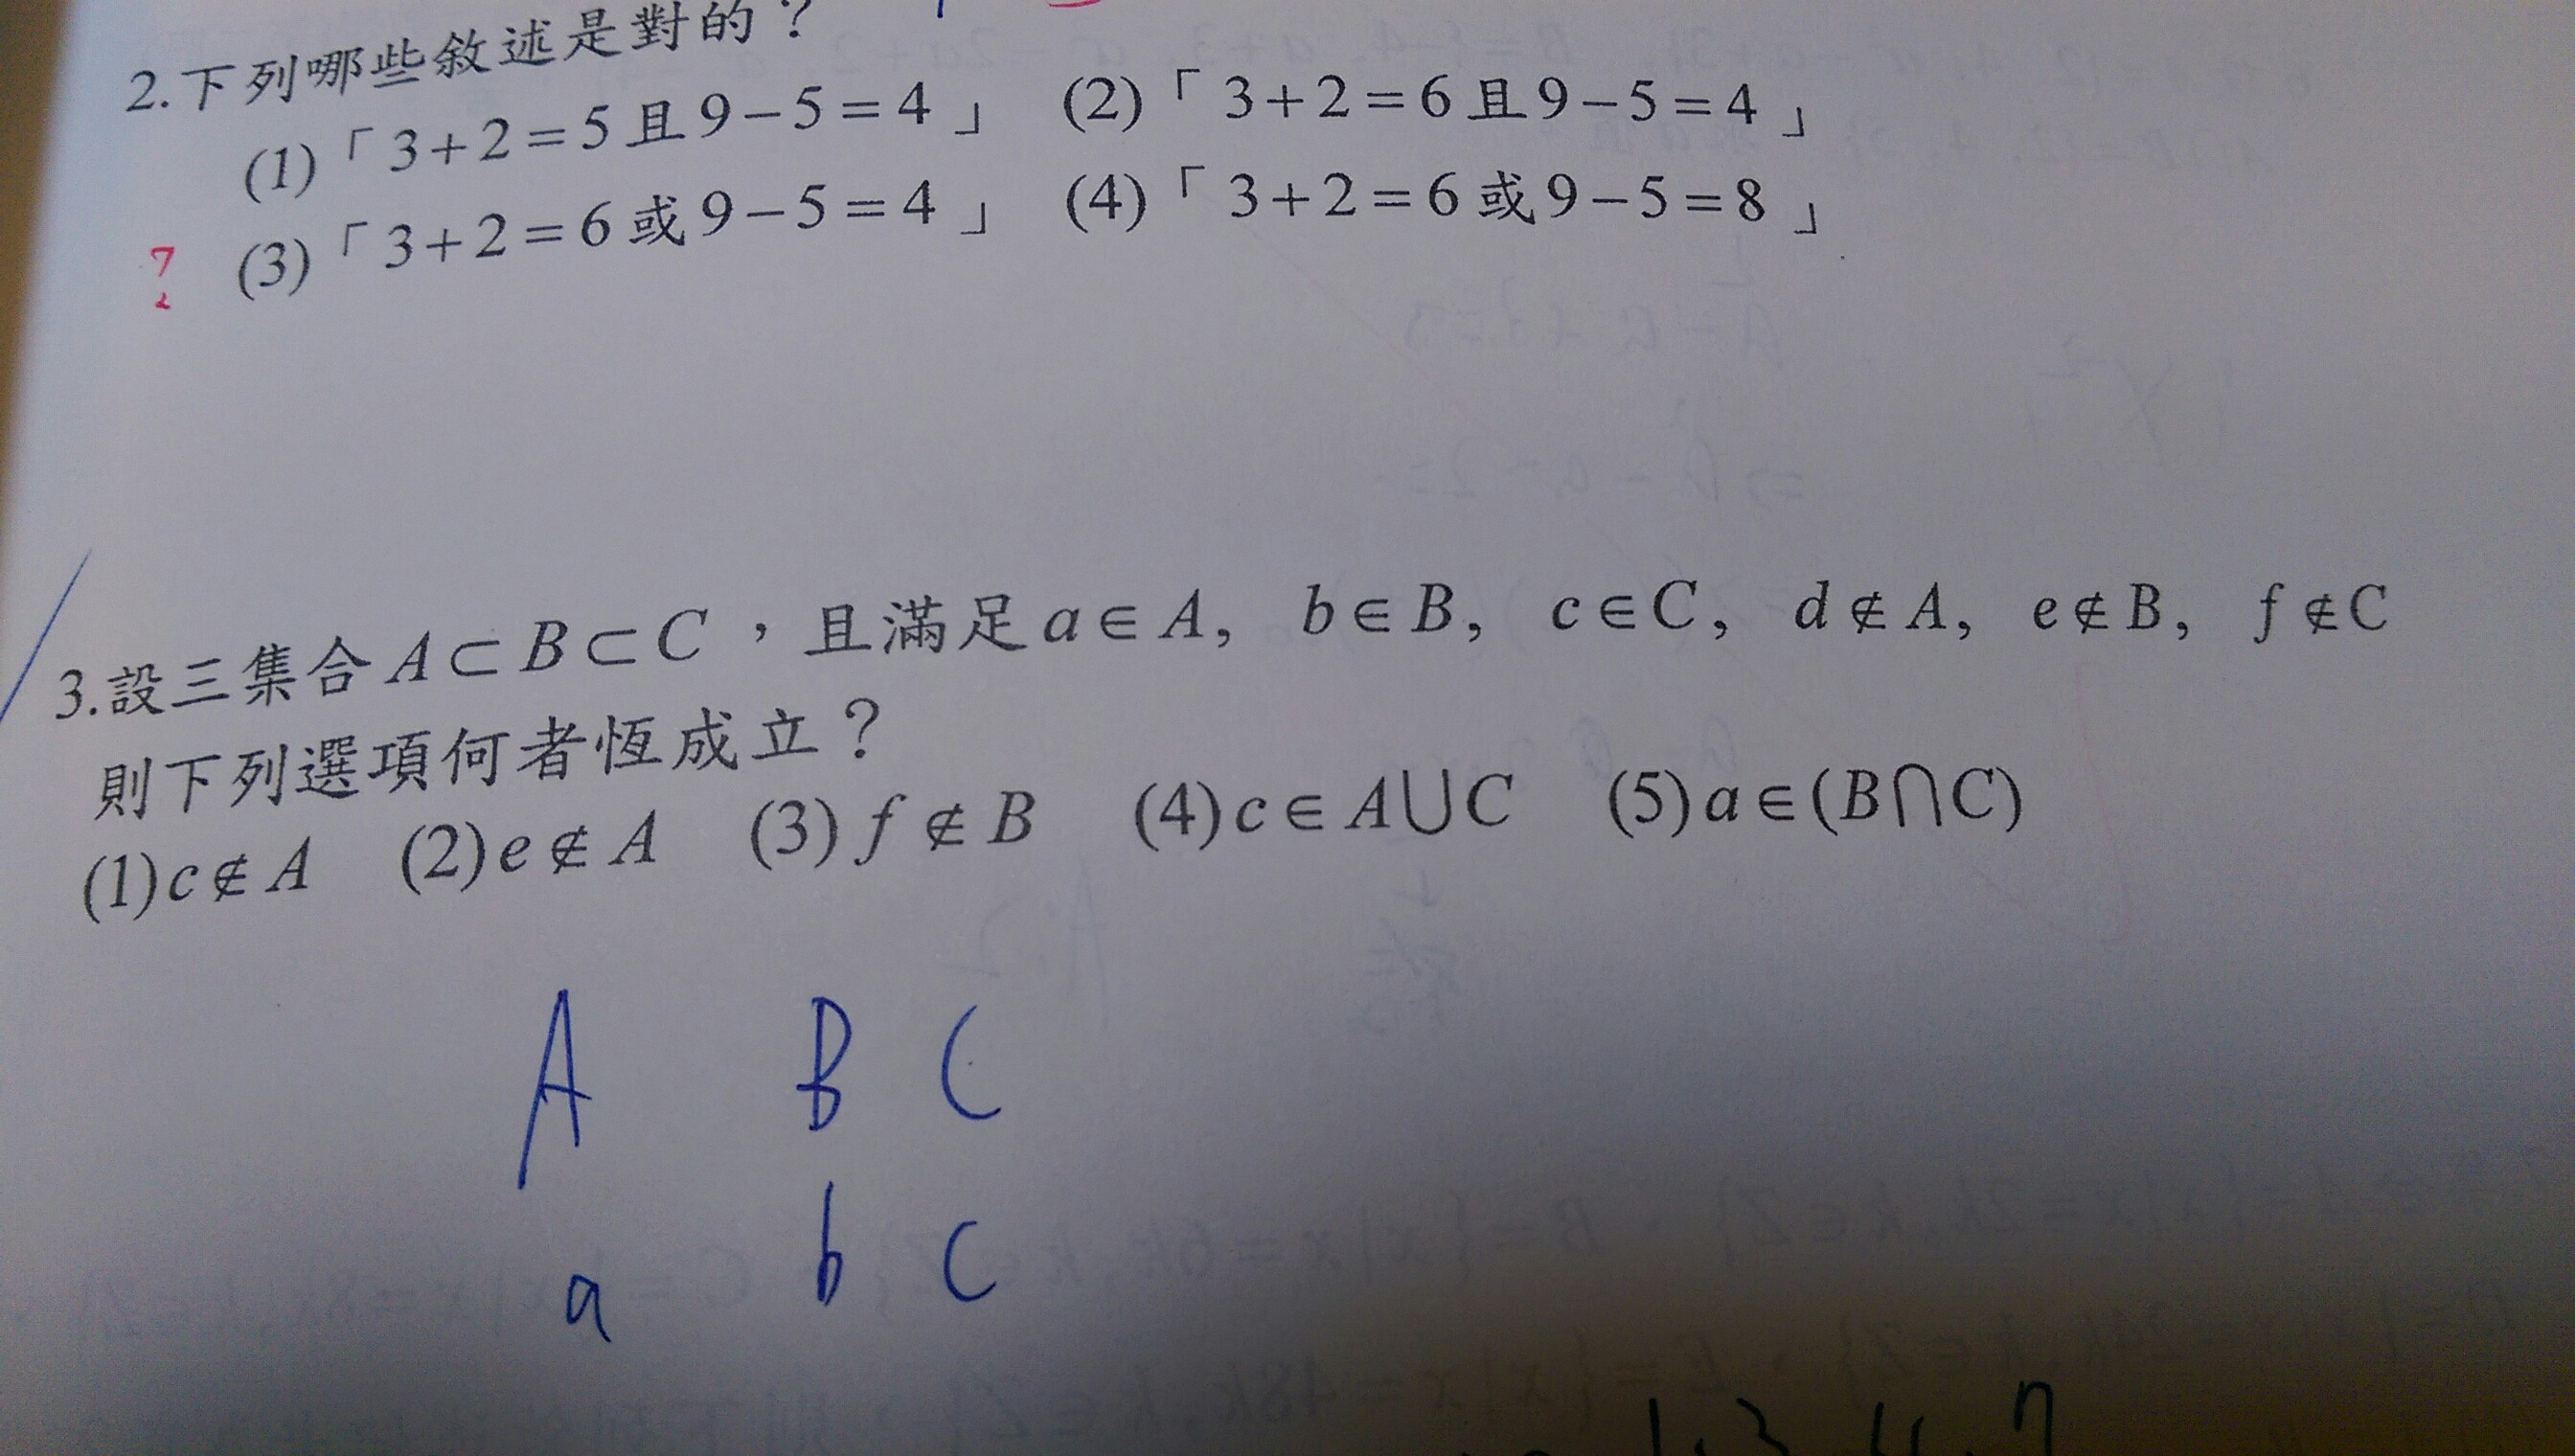 2.下列哪些敘述是對的？
(1)「3+2=5且9−5=4」 (2)「3+2=6且9−5=4」
? (3)「3+2=6或9−5=4」 (4)「3+2=6或9−5=8」
3.設三集合A⊂B⊂C，且滿足a∈A, b∈B, c∈C, d∉A, e∉B, f∉C
則下列選項何者恆成立？
(1)c∉A (2)e∉A (3)f∉B (4)c∈A∪C (5)a∈(B∩C)
A B C
a b c